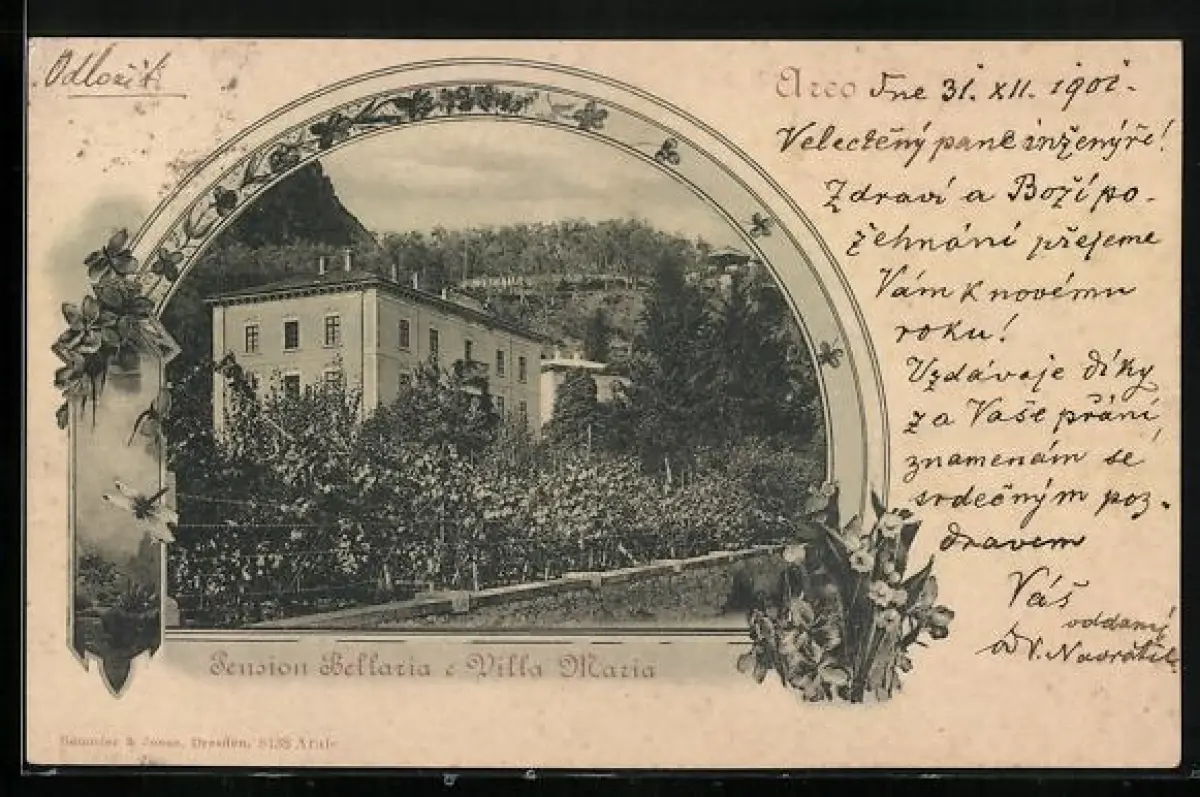 Odložik
Arco Dne 31. XII. 1901.
Velectěný pane inženýře!
Zdraví a Boží po-
žehnání přejeme
Vám k novému
roku!
Vzdávaje díky
za Vaše přání,
znamenám se
srdečným poz-
dravem
Váš
oddaný
V. Navrátil
Pension Bellaria e Villa Maria
Dresden,